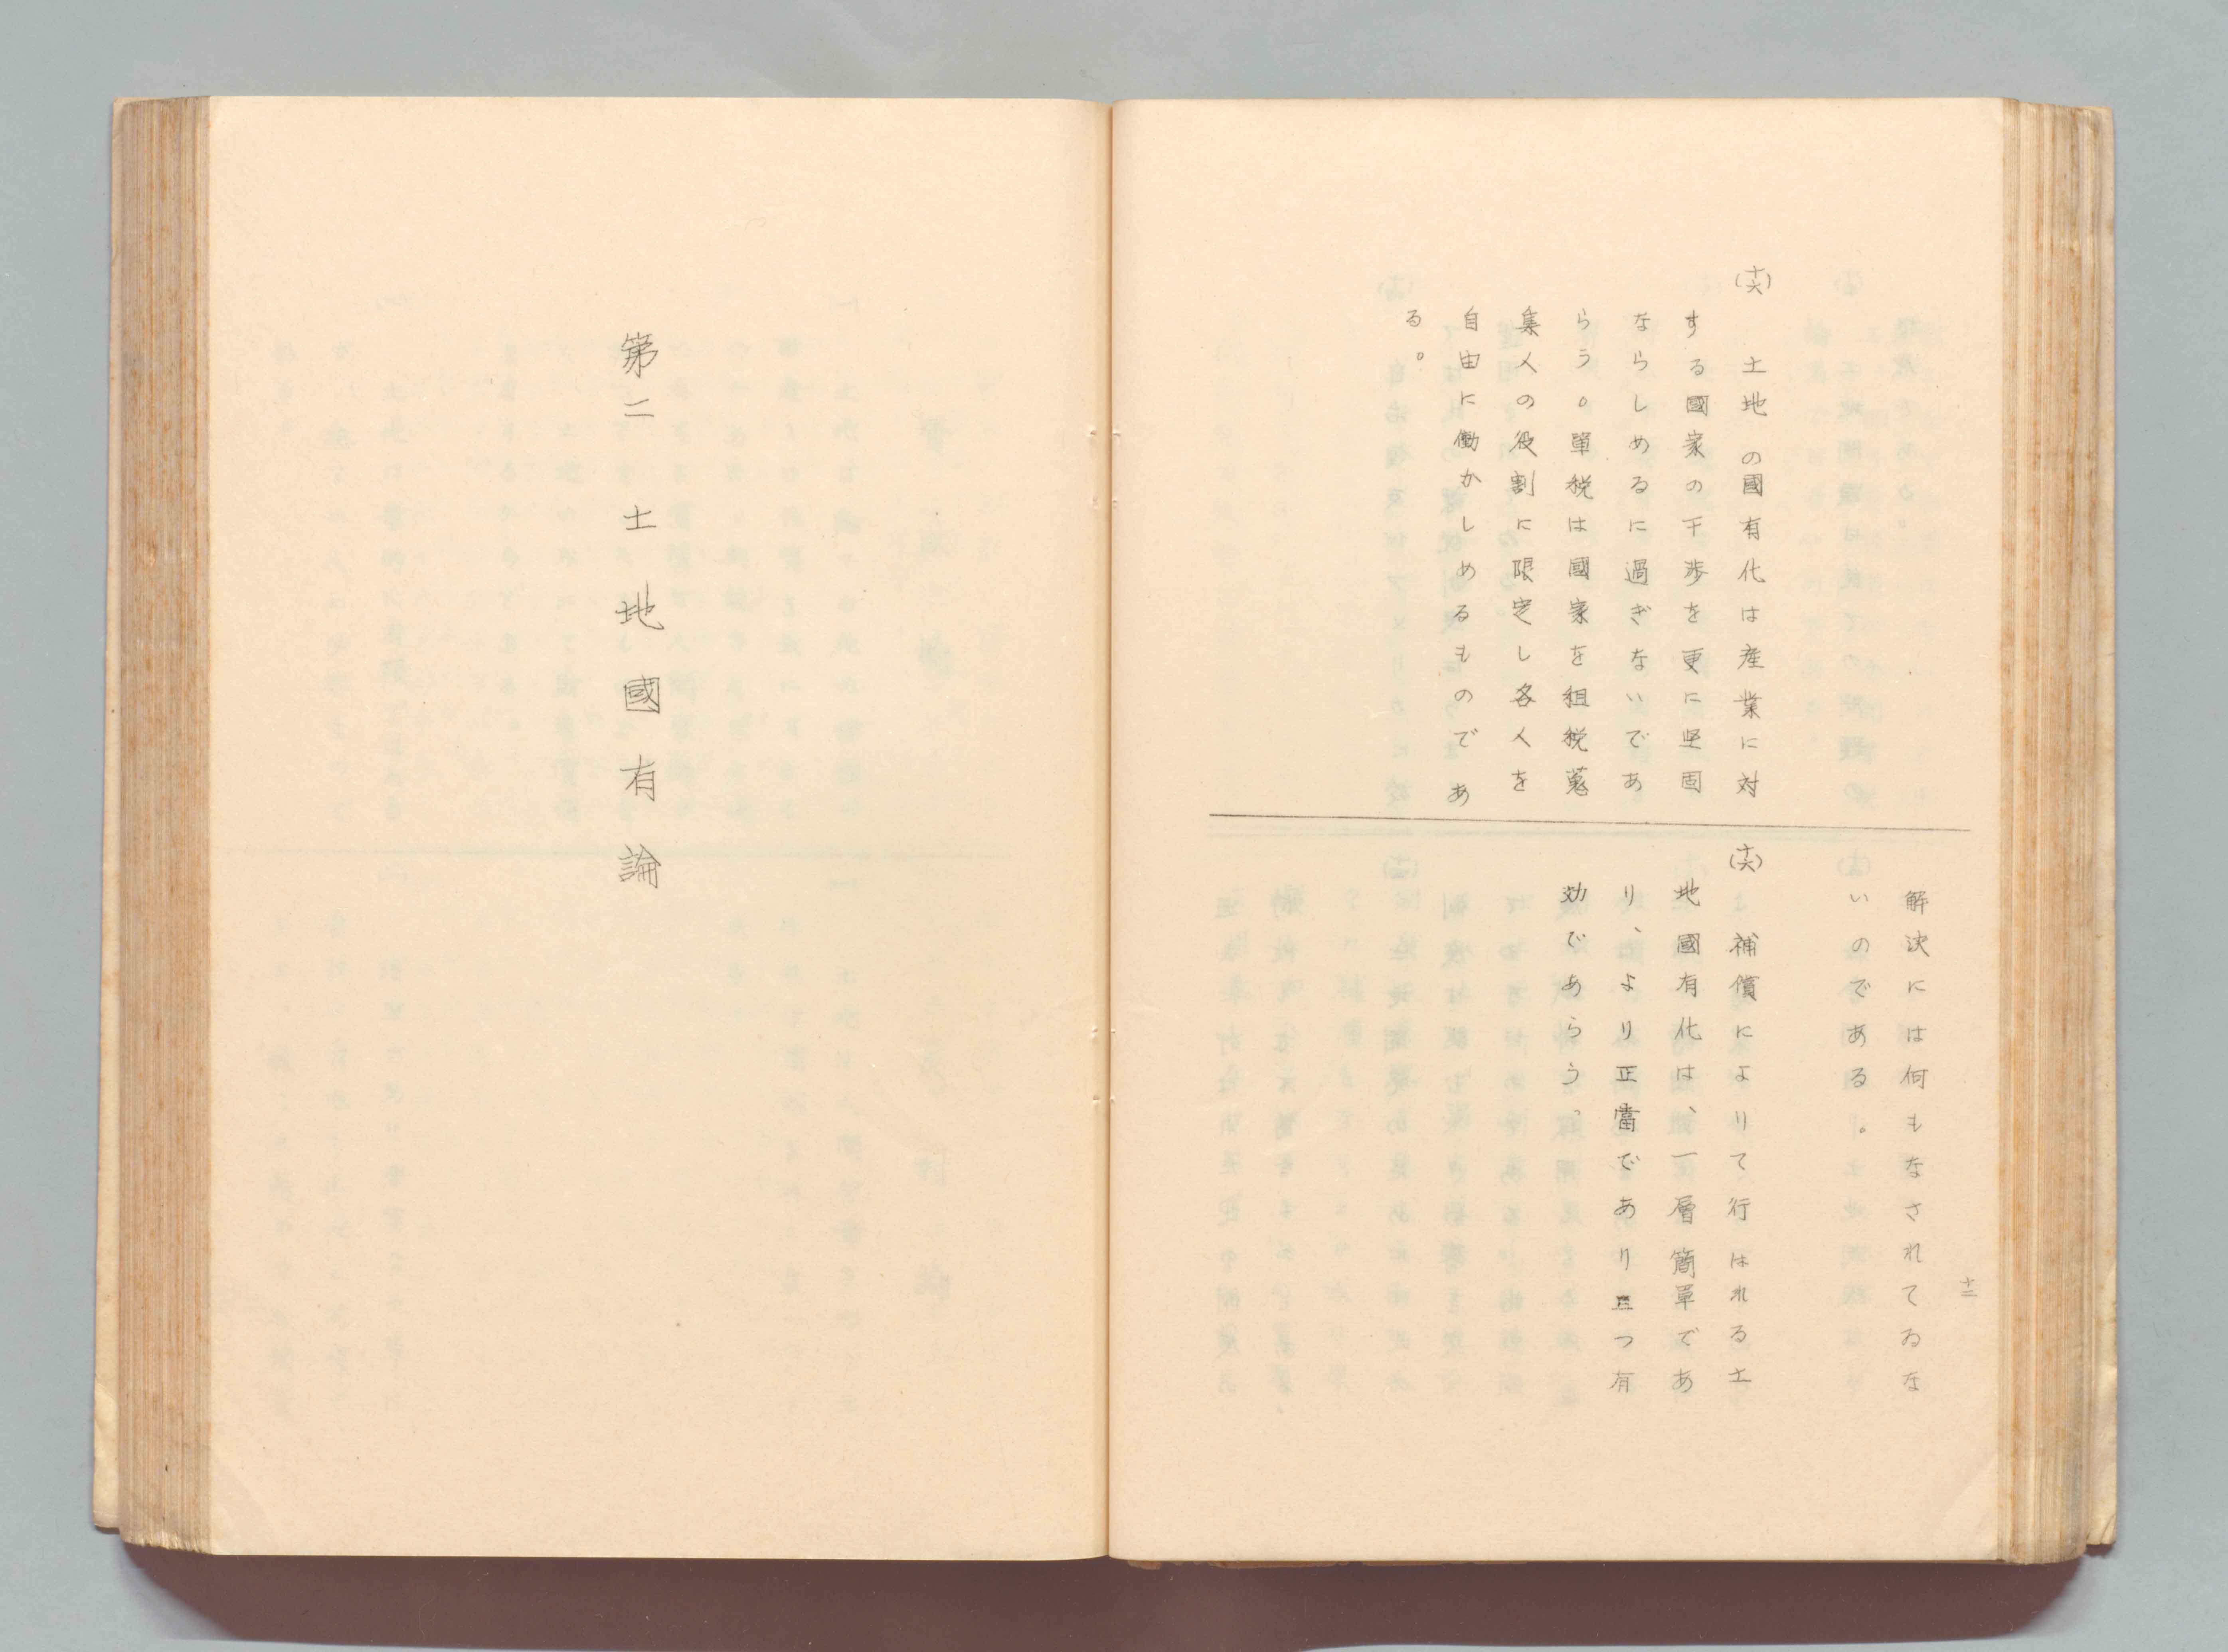 (十六)
土地の國有化は産業に対
する國家の干渉を更に堅固
ならしめるに過ぎないであ
らう。單税は國家を租税蒐
集人の役割に限定し各人を
自由に働かしめるものであ
る。
解決には何もなされてゐな
いのである。
(十六)
補償によりて行はれる土
地國有化は、一層簡單であ
り、より正當であり且つ有
効であらう。
十二
第二 土地國有論